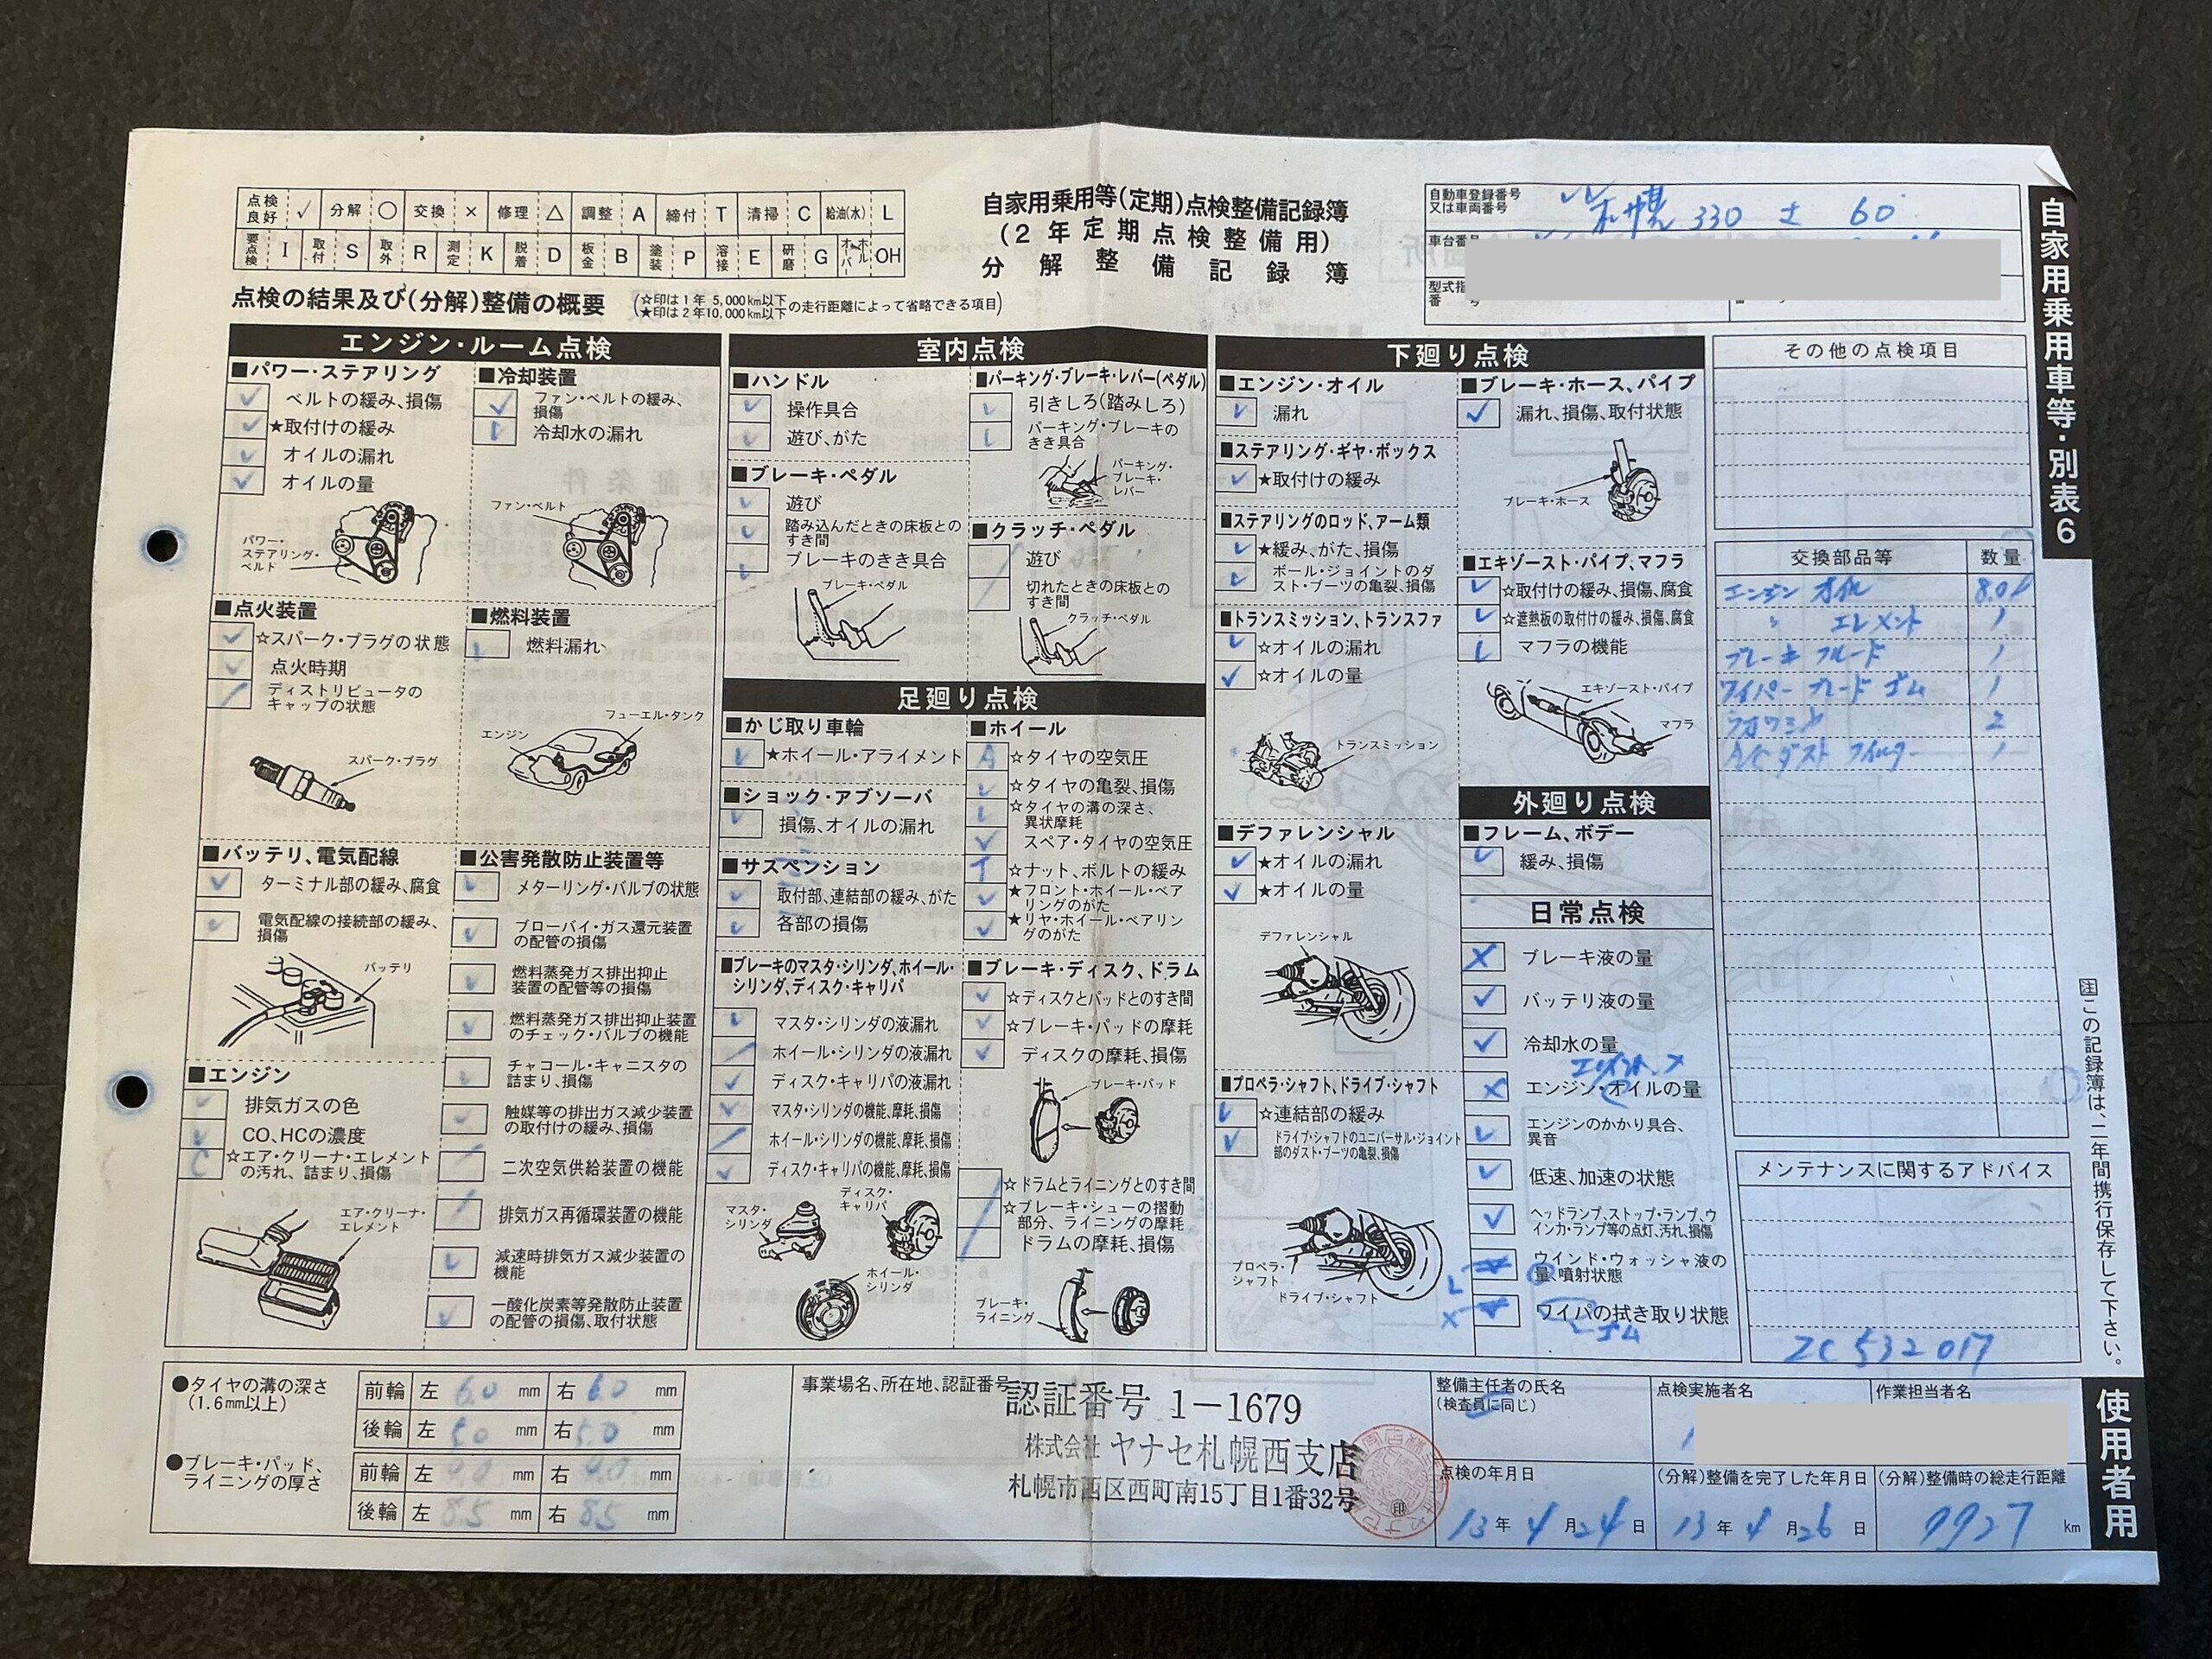 点検良好 ✓ 分解 ○ 交換 × 修理 △ 調整 A 締付 T 清掃 C 給油(水) L
要点検 I 取付 S 取外 R 測定 K 脱着 D 板金 B 塗装 P 溶接 E 研磨 G オーバーホール OH
自家用乗用等(定期)点検整備記録簿
(2年定期点検整備用)
分解整備記録簿
自動車登録番号
又は車両番号
札幌 330 さ 60
車台番号
自家用乗用車等・別表6
点検の結果及び(分解)整備の概要
(☆印は1年 5,000km以下
★印は2年10,000km以下の走行距離によって省略できる項目)
エンジン・ルーム点検
■パワー・ステアリング
ベルトの緩み、損傷
★取付けの緩み
オイルの漏れ
オイルの量
パワー・
ステアリング・
ベルト
■冷却装置
ファン・ベルトの緩み、
損傷
冷却水の漏れ
ファン・ベルト
■点火装置
☆スパーク・プラグの状態
点火時期
ディストリビュータの
キャップの状態
スパーク・プラグ
■燃料装置
燃料漏れ
フューエル・タンク
エンジン
■バッテリ、電気配線
ターミナル部の緩み、腐食
電気配線の接続部の緩み、
損傷
バッテリ
■公害発散防止装置等
メターリング・バルブの状態
ブローバイ・ガス還元装置
の配管の損傷
燃料蒸発ガス排出抑止
装置の配管等の損傷
燃料蒸発ガス排出抑止装置
のチェック・バルブの機能
チャコール・キャニスタの
詰まり、損傷
触媒等の排出ガス減少装置
の取付けの緩み、損傷
二次空気供給装置の機能
排気ガス再循環装置の機能
減速時排気ガス減少装置の
機能
一酸化炭素等発散防止装置
の配管の損傷、取付状態
■エンジン
排気ガスの色
CO、HCの濃度
C ☆エア・クリーナ・エレメント
の汚れ、詰まり、損傷
エア・クリーナ・
エレメント
室内点検
■ハンドル
操作具合
遊び、がた
■ブレーキ・ペダル
遊び
踏み込んだときの床板との
すき間
ブレーキのきき具合
ブレーキ・ペダル
■パーキング・ブレーキ・レバー(ペダル)
引きしろ(踏みしろ)
パーキング・ブレーキの
きき具合
パーキング・
ブレーキ・
レバー
■クラッチ・ペダル
遊び
切れたときの床板との
すき間
クラッチ・ペダル
足廻り点検
■かじ取り車輪
★ホイール・アライメント
■ショック・アブソーバ
損傷、オイルの漏れ
■サスペンション
取付部、連結部の緩み、がた
各部の損傷
■ブレーキのマスタ・シリンダ、ホイール・
シリンダ、ディスク・キャリパ
マスタ・シリンダの液漏れ
ホイール・シリンダの液漏れ
ディスク・キャリパの液漏れ
マスタ・シリンダの機能、摩耗、損傷
ホイール・シリンダの機能、摩耗、損傷
ディスク・キャリパの機能、摩耗、損傷
マスタ・
シリンダ
ディスク・
キャリパ
ホイール・
シリンダ
■ホイール
A ☆タイヤの空気圧
☆タイヤの亀裂、損傷
☆タイヤの溝の深さ、
異状摩耗
スペア・タイヤの空気圧
T ☆ナット、ボルトの緩み
★フロント・ホイール・ベア
リングのがた
★リヤ・ホイール・ベアリン
グのがた
■ブレーキ・ディスク、ドラム
☆ディスクとパッドとのすき間
☆ブレーキ・パッドの摩耗
ディスクの摩耗、損傷
ブレーキ・パッド
☆ドラムとライニングとのすき間
☆ブレーキ・シューの摺動
部分、ライニングの摩耗
ドラムの摩耗、損傷
ブレーキ・
ライニング
下廻り点検
■エンジン・オイル
漏れ
■ステアリング・ギヤ・ボックス
★取付けの緩み
■ステアリングのロッド、アーム類
★緩み、がた、損傷
ボール・ジョイントのダ
スト・ブーツの亀裂、損傷
■トランスミッション、トランスファ
☆オイルの漏れ
☆オイルの量
トランスミッション
■デファレンシャル
★オイルの漏れ
★オイルの量
デファレンシャル
■プロペラ・シャフト、ドライブ・シャフト
☆連結部の緩み
ドライブ・シャフトのユニバーサル・ジョイント
部のダスト・ブーツの亀裂、損傷
プロペラ・
シャフト
ドライブ・シャフト
■ブレーキ・ホース、パイプ
漏れ、損傷、取付状態
ブレーキ・ホース
■エキゾースト・パイプ、マフラ
☆取付けの緩み、損傷、腐食
☆遮熱板の取付けの緩み、損傷、腐食
マフラの機能
エキゾースト・パイプ
マフラ
外廻り点検
■フレーム、ボデー
緩み、損傷
日常点検
× ブレーキ液の量
バッテリ液の量
冷却水の量
× エンジン・オイルの量
エンジンのかかり具合、
異音
低速、加速の状態
ヘッドランプ、ストップ・ランプ、ウ
インカ・ランプ等の点灯、汚れ、損傷
L ウインド・ウォッシャ液の
量、噴射状態
× ワイパの拭き取り状態
ゴム
その他の点検項目
交換部品等 数量
エンジン オイル 8.0ℓ
〃 エレメント 1
ブレーキ フルード 1
ワイパー ブレード ゴム 1
2
A/C ダスト フィルター 1
メンテナンスに関するアドバイス
ZC532017
注 この記録簿は、二年間携行保存して下さい。
使用者用
●タイヤの溝の深さ
(1.6mm以上)
前輪 左 6.0 mm 右 6.0 mm
後輪 左 5.0 mm 右 5.0 mm
●ブレーキ・パッド、
ライニングの厚さ
前輪 左 9.0 mm 右 9.0 mm
後輪 左 8.5 mm 右 8.5 mm
事業場名、所在地、認証番号
認証番号 1-1679
株式会社 ヤナセ札幌西支店
札幌市西区西町南15丁目1番32号
整備主任者の氏名
(検査員に同じ)
点検実施者名
作業担当者名
点検の年月日
13年 4月24日
(分解)整備を完了した年月日
13年 4月26日
(分解)整備時の総走行距離
9927 km